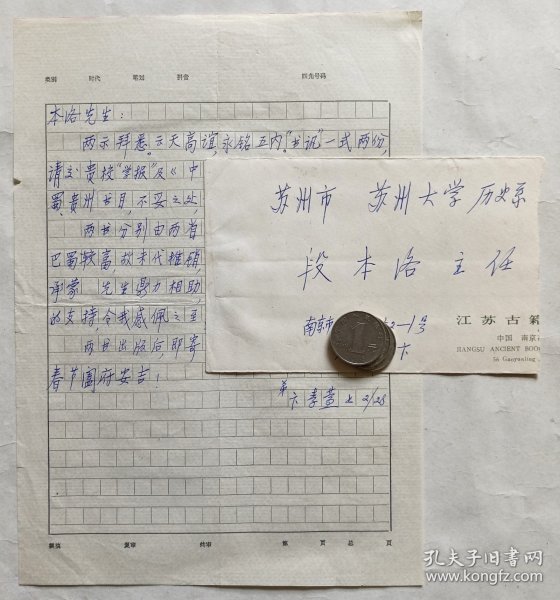 类别 时代 笔划 拼音 四角号码
本洛先生：
两示拜悉。云天高谊，永铭五内。"书讯"一式两份，
请交贵校"学报"及《中
蜀、贵州书目，不妥之处，
两书分别由两省
巴蜀较富，故未代推销，
承蒙 先生鼎力相助，
的支持令我感佩之至
两书出版后，即寄
春节阖府安吉！
弟
卞孝萱上 2/28
编演 复审 共审 第 页 总 页
苏州市 苏州大学历史系
段本洛主任
南京市
2-1号
卞
江苏古籍
中国 南京
JIANGSU ANCIENT BOO
56 Gaoyunling
1
孔夫子旧书网
www.kongfz.com